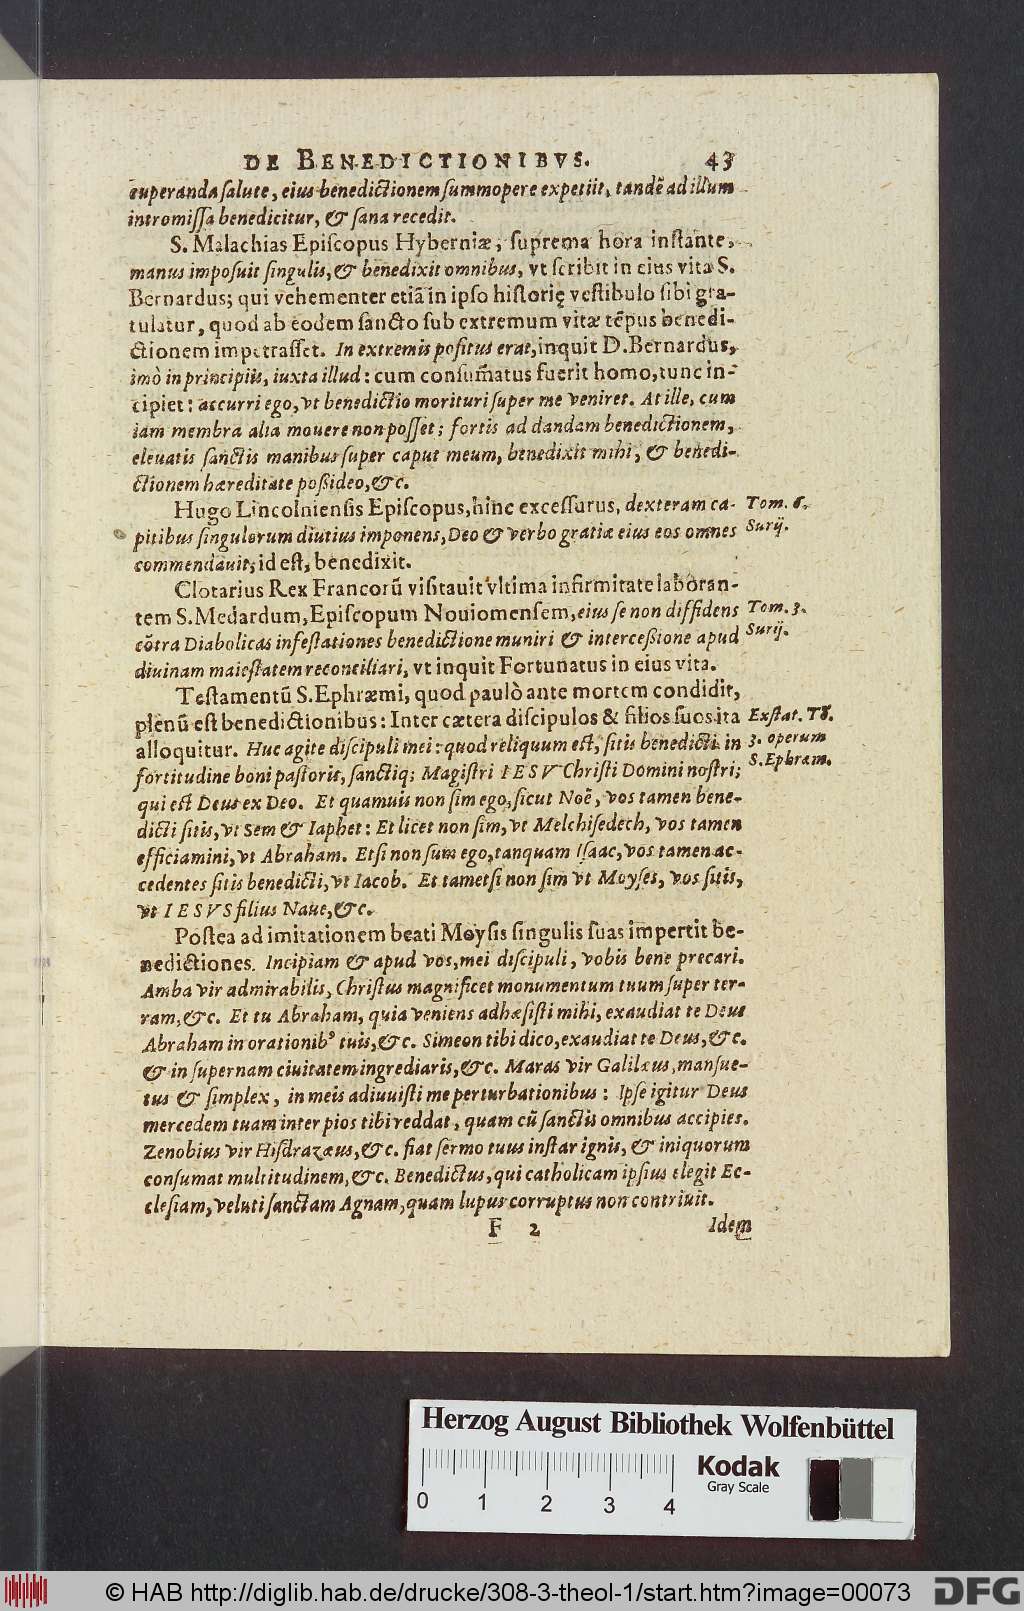 DE BENEDICTIONIBVS. 43
euperanda salute, eius benedictionem summopere expetiit, tandẽ ad illum
intromissa benedicitur, & sana recedit.
S. Malachias Episcopus Hyberniæ, suprema hora instante,
manus imposuit singulis, & benedixit omnibus, vt scribit in eius vita S.
Bernardus; qui vehementer etiã in ipso historię vestibulo sibi gra-
tulatur, quod ab eodem sancto sub extremum vitæ tẽpus benedi-
ctionem impetrasset. In extremis positus erat, inquit D. Bernardus,
imò in principiis, iuxta illud: cum consum̃atus fuerit homo, tunc in-
cipiet: accurri ego, vt benedictio morituri super me veniret. At ille, cum
iam membra alia mouere non posset; fortis ad dandam benedictionem,
eleuatis sanctis manibus super caput meum, benedixit mihi, & benedi-
ctionem hæreditate poßideo, &c.
Hugo Lincolniensis Episcopus, hinc excessurus, dexteram ca- Tom. 6.
pitibus singulorum diutius imponens, Deo & verbo gratiæ eius eos omnes Surij.
commendauit; id est, benedixit.
Clotarius Rex Francorũ visitauit vltima infirmitate laboran-
tem S. Medardum, Episcopum Nouiomensem, eius se non diffidens Tom. 3.
cõtra Diabolicas infestationes benedictione muniri & interceßione apud Surij.
diuinam maiestatem reconciliari, vt inquit Fortunatus in eius vita.
Testamentũ S. Ephræmi, quod paulò ante mortem condidit,
plenũ est benedictionibus: Inter cætera discipulos & filios suos ita Exstat. To.
alloquitur. Huc agite discipuli mei: quod reliquum est, sitis benedicti in 3. operum
fortitudine boni pastoris, sanctiq; Magistri IESV Christi Domini nostri; S. Ephræm.
qui est Deus ex Deo. Et quamuis non sim ego, sicut Noë, vos tamen bene-
dicti sitis, vt Sem & Iaphet: Et licet non sim, vt Melchisedech, vos tamen
efficiamini, vt Abraham. Etsi non sum ego, tanquam Isaac, vos tamen ac-
cedentes sitis benedicti, vt Iacob. Et tametsi non sim vt Moyses, vos sitis,
vt IESVS filius Naue, &c.
Postea ad imitationem beati Moysis singulis suas impertit be-
nedictiones. Incipiam & apud vos, mei discipuli, vobis bene precari.
Amba vir admirabilis, Christus magnificet monumentum tuum super ter-
ram, &c. Et tu Abraham, quia veniens adhæsisti mihi, exaudiat te Deus
Abraham in orationibꝰ tuis, &c. Simeon tibi dico, exaudiat te Deus, &c.
& in supernam ciuitatem ingrediaris, &c. Maras vir Galilæus, mansue-
tus & simplex, in meis adiuuisti me perturbationibus: Ipse igitur Deus
mercedem tuam inter pios tibi reddat, quam cũ sanctis omnibus accipies.
Zenobius vir Hisdrazæus, &c. fiat sermo tuus instar ignis, & iniquorum
consumat multitudinem, &c. Benedictus, qui catholicam ipsius elegit Ec-
clesiam, veluti sanctam Agnam, quam lupus corruptus non contriuit.
F 2 Idem
Herzog August Bibliothek Wolfenbüttel
0 1 2 3 4
Kodak
Gray Scale
© HAB http://diglib.hab.de/drucke/308-3-theol-1/start.htm?image=00073
DFG